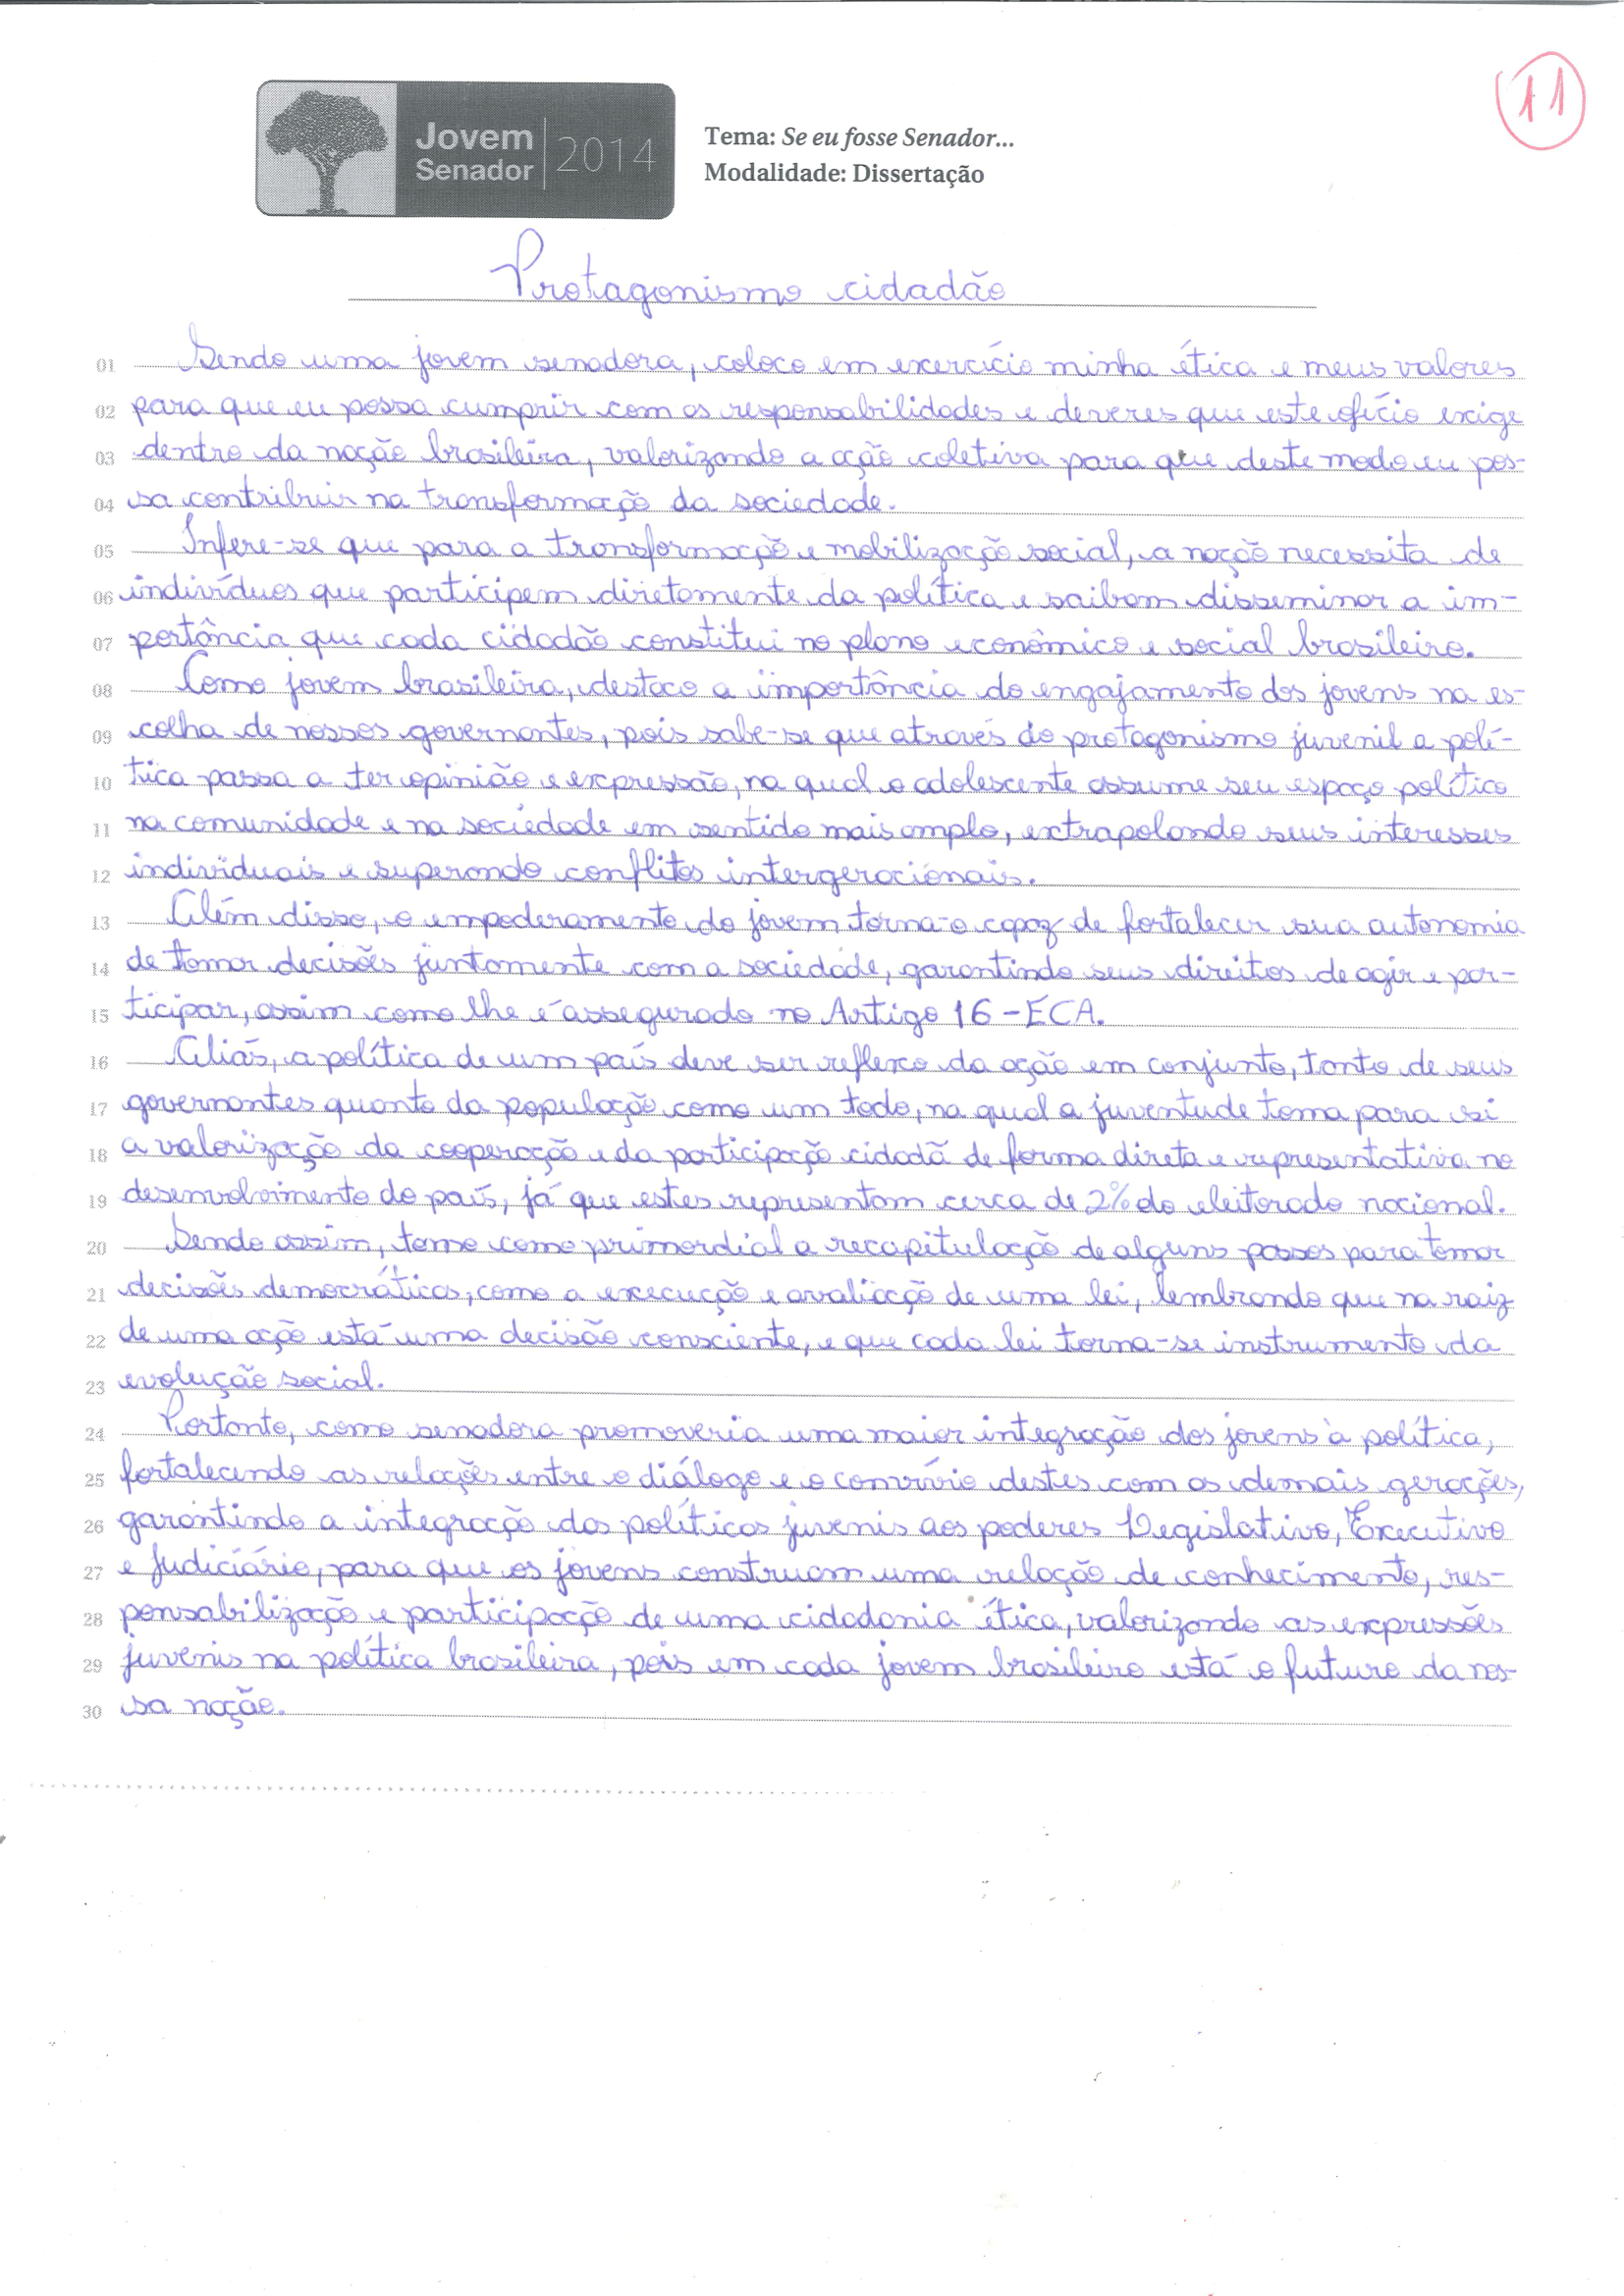 11
Jovem
Senador
2014
Tema: Se eu fosse Senador...
Modalidade: Dissertação
Protagonismo cidadão
01 Sendo uma jovem senadora, coloco em exercício minha ética e meus valores
02 para que eu possa cumprir com as responsabilidades e deveres que este ofício exige
03 dentro da nação brasileira, valorizando a ação coletiva para que deste modo eu pos-
04 sa contribuir na transformação da sociedade.
05 Infere-se que para a transformação e mobilização social, a nação necessita de
06 indivíduos que participem diretamente da política e saibam disseminar a im-
07 portância que cada cidadão constitui no plano econômico e social brasileiro.
08 Como jovem brasileira, destaco a importância do engajamento dos jovens na es-
09 colha de nossos governantes, pois sabe-se que através do protagonismo juvenil a polí-
10 tica passa a ter opinião e expressão, na qual o adolescente assume seu espaço político
11 na comunidade e na sociedade em sentido mais amplo, extrapolando seus interesses
12 individuais e superando conflitos intergeracionais.
13 Além disso, o empoderamento do jovem torna-o capaz de fortalecer sua autonomia
14 de tomar decisões juntamente com a sociedade, garantindo seus direitos de agir e par-
15 ticipar, assim como lhe é assegurado no Artigo 16 - ECA.
16 Aliás, a política de um país deve ser reflexo da ação em conjunto, tanto de seus
17 governantes quanto da população como um todo, na qual a juventude toma para si
18 a valorização da cooperação e da participação cidadã de forma direta e representativa no
19 desenvolvimento do país, já que estes representam cerca de 2% do eleitorado nacional.
20 Sendo assim, tomo como primordial a recapitulação de alguns passos para tomar
21 decisões democráticas, como a execução e avaliação de uma lei, lembrando que na raiz
22 de uma ação está uma decisão consciente, e que cada lei torna-se instrumento da
23 evolução social.
24 Portanto, como senadora promoveria uma maior integração dos jovens à política,
25 fortalecendo as relações entre o diálogo e o convívio destes com as demais gerações,
26 garantindo a integração das políticas juvenis aos poderes Legislativo, Executivo
27 e Judiciário, para que os jovens construam uma relação de conhecimento, res-
28 ponsabilização e participação de uma cidadania ética, valorizando as expressões
29 juvenis na política brasileira, pois em cada jovem brasileiro está o futuro da nos-
30 sa nação.